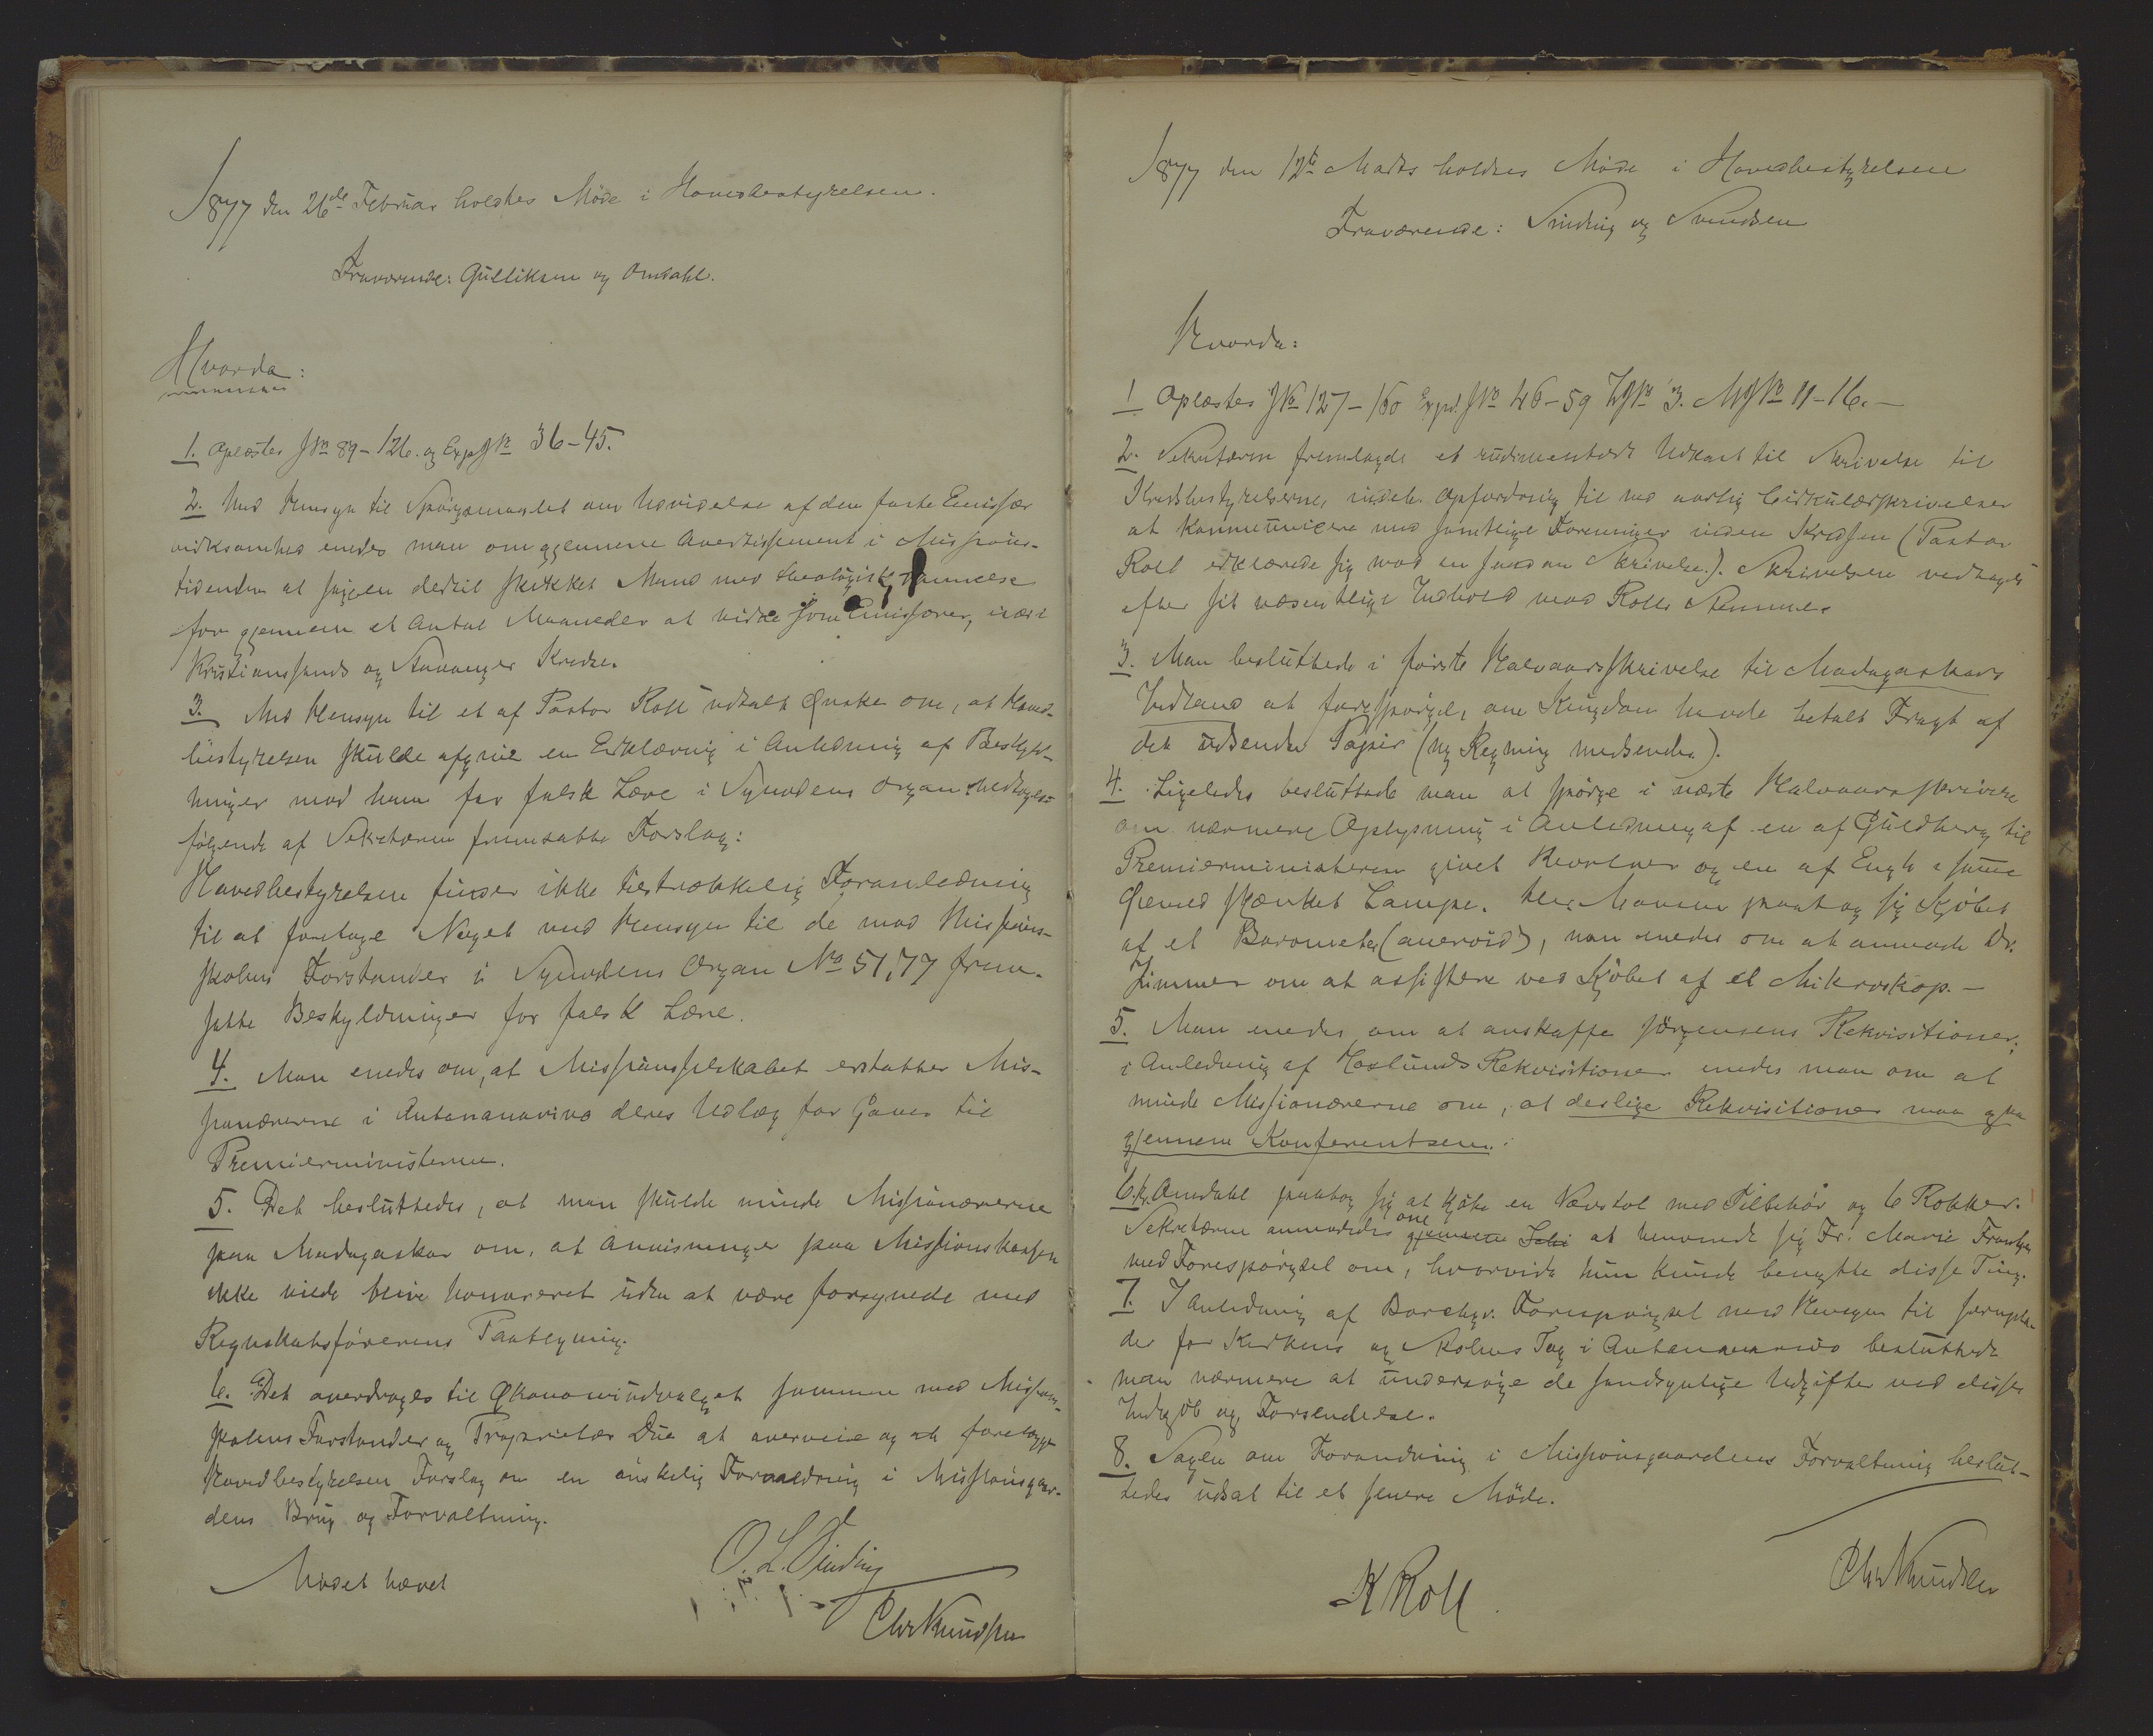 1877 den 26de Februar holdtes Møde i Hovedbestyrelsen.
Fraværende: Gulliksen og Omdahl.
Hvorda:
1. Oplæstes JNo 89-126. og ExpJNo 36-45.
2. Med Hensyn til Spørgsmaalet om Udvidelse af den faste Emissær
virksomhed enedes man om gjennem Avertissement i Missions-
tidenden at søge en dertil skikket Mand med theologisk Dannelse
for gjennem et Antal Maaneder at virke som Emissærer, især i
Kristianssands og Stavanger Kredse.
3. Med Hensyn til et af Pastor Roll udtalt Ønske om, at Hoved-
bestyrelsen skulde afgive en Erklæring i Anledning af Beskyld-
ninger mod ham for falsk Lære i Synodens Organ vedtoges
følgende af Sekretæren fremsatte Forslag:
Hovedbestyrelsen finder ikke tilstrækkelig Foranledning
til at foretage Noget med Hensyn til de mod Missions-
skolens Forstander i Synodens Organ No 51, 77 frem-
satte Beskyldninger for falsk Lære.
4. Man enedes om, at Missionsselskabet erstatter Mis-
sionærerne i Antananarivo deres Udlæg for Gaver til
Premierministeren.
5. Det besluttedes, at man skulde minde Missionærerne
paa Madagaskar om, at Anvisninger paa Missionskassen
ikke vilde blive honoreret uden at være forsynede med
Regnskabsførerens Paategning.
6. Det overdroges til Økonomiudvalget sammen med Missions-
skolens Forstander og Proprietær Due at overveie og at forelægge
Hovedbestyrelsen Forslag om en ønskelig Forandring i Missionsgaar-
dens Brug og Forvaltning.
Mødet hævet
O. L. Sinding
Chr Knudsen
1877 den 12te Marts holdtes Møde i Hovedbestyrelsen
Fraværende: Sinding og Svendsen
Hvorda:
1 Oplæstes JNo 127-160 Expd. JNo 46-59 ZJNo 3. MJNo 11-16.-
2. Sekretæren fremlagde et rudimentært Udkast til Skrivelse til
Kredsbestyrelserne, indeh. Opfordring til ved aarlig Cirkulærskrivelser
at kommunicere med samtlige Foreninger inden Kredsen (Pastor
Roll erklærede sig mod en saadan Skrivelse.). Skrivelsen vedtoges
efter sit væsentlige Indhold mod Rolls Stemme.
3. Man besluttede i første Halvaarsskrivelse til Madagaskars
Indland at forespørge, om Kingdon havde betalt Fragt af
det udsendte Papir (ny Regning medsendes).
4. Ligeledes besluttede man at spørge i næste Halvaarsskrivelse
om nærmere Oplysning i Anledning af en af Guldberg til
Premierministeren givet Revolver og en af Engh i samme
Øiemed skænket Lampe. paatog sig Kjøbet
af et Barometer (aneroid), man enedes om at anmode Dr.
Zimmer om at assistere ved Kjøbet af et Mikroskop.-
5. Man enedes om at anskaffe Jørgensens Rekvisitioner;
i Anledning af Haslunds Rekvisitioner enedes man om at
minde Missionærerne om, at deslige Rekvisitioner maa gaa
gjennem Konferentsen.
6. Hr. Omdahl paatog sig at kjøbe en Vævstol med Tilbehør og 6 Rokker.
Sekretæren anmodedes om at henvende sig Fr. Marie
med Forespørgsel om, hvorvidt hun kunde benytte disse Ting.
7. I Anledning af Borchgr. Forespørgsel med Hensyn til Jernpla-
der for Kirkens og Skolens Tag i Antananarivo besluttede
man nærmere at undersøge de sandsynlige Udgifter ved disses
Indkjøb og Forsendelse.
8. Sagen om Forandring i Missionsgaardens Forvaltning beslut-
tedes udsat til et senere Møde.
K Roll
Chr Knudsen